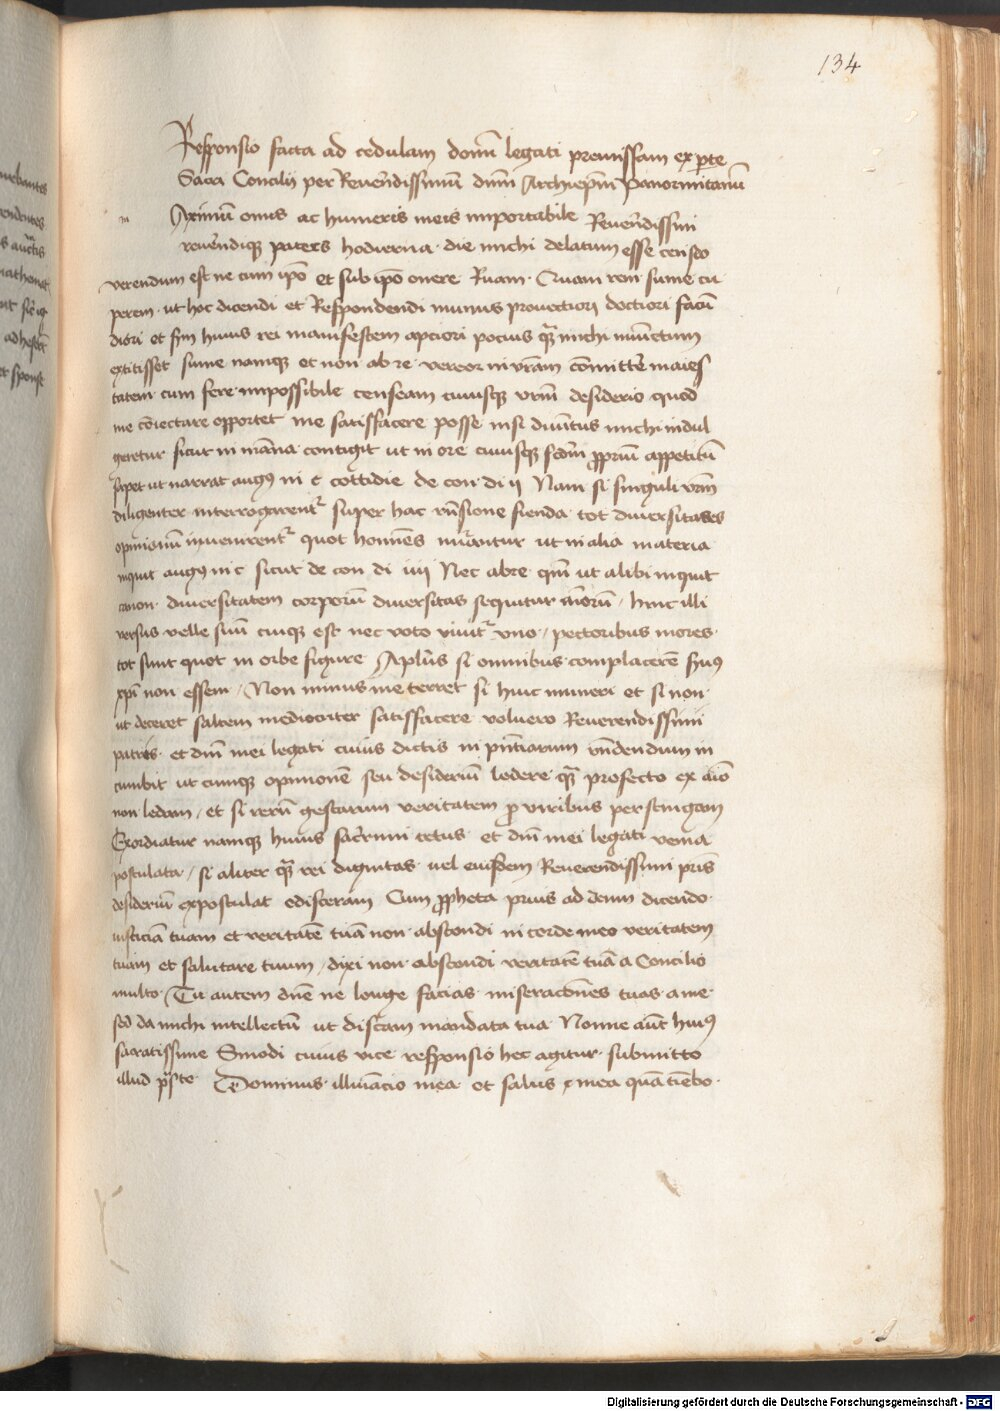 134
Responsio facta ad cedulam domi͞ legati premissam ex p̱te
Sacri Concilii per Reuerendissimu͞ dnm͞ Archiepm͞ panormitanu͞
m Aximu͞ onus ac humeris meis importabile Reuerendissimi
reuerendiq; patres hodierna die michi delatum esse censeo
verendum est ne cum ip̄o et sub ip̄o onere Ruam. Quam rem sume cu
perem. ut hoc dicendi et Respondendi munus prouectiori doctiori facu͞
diori et huius rei manifestem apciori pocius qͣ michi iniunctum
extitisset sume namq; et non ab re vereor in vr̄am co͞mittere maies
tatem cum fere impossibile censeam cuiusq; vrm͞ desiderio quod
me co͞iectare opportet me satisfacere posse nisi diuinitus michi indul
geretur sicut in ma͞na contigit ut in ore cuiusq; scdm͞ ꝓprium appetitu͞
saperet ut narrat augꝰ in c cottidie de con di ij Nam si singuli vrm͞
diligenter interrogarentr super hac rn͞sione fienda tot diuersitates
opinionu͞ inuenirentr quot homi͞es nu͞antur ut in alia materia
inquit augꝰ in c sicut de con di iiij Nec abre qm͞ ut alibi inquit
canon diuersitatem corporu͞ diuersitas sequitur moru͞ / hinc illi
versus velle suu͞ cuiq; est nec voto viuitr vno / pectoribus mores
tot sunt quot in orbe figure Aplūs si omnibus complacere͞ seruꝰ
xp̄i non essem / Non minus me terret si huic muneri et si non
ut deceret saltem mediocriter satisfacere voluero Reuerendissimi
patris et dnī mei legati cuius dictis in pn̄tiarum rn͞dendum in
cumbit ut cumq; opinione͞ seu desideriu͞ ledere qͣ profecto ex aī͞o
non ledam / et si reru͞ gestarum veritatem ꝓ viribus perstringam
Exordiatur namq; huius sacrimi cetus et dnī mei legati venia
postulata / si aliter qͣ rei dignitas uel eiusdem Reuerendissimi pr̄is
desideriu͞ expostulat ediscera͞m Cum ꝓpheta prius ad deum dicendo
iusticia͞ tuam et veritate͞ tua͞ non abscondi in corde meo veritatem
tuam et salutare tuum / dixi non abscondi veritate͞ tua͞ a Concilio
multo / Tu autem dn̄e ne longe facias miseracōnes tuas a me
sed da michi intellectu͞ ut discam mandata tua Nomine aut͞ huiꝰ
sacratissime Sinodi cuius vice responsio hec agitur submitto
illud Dominus illuiacio mea et salus mea que͞ timebo
Digitalisierung gefördert durch die Deutsche Forschungsgemeinschaft - DFG